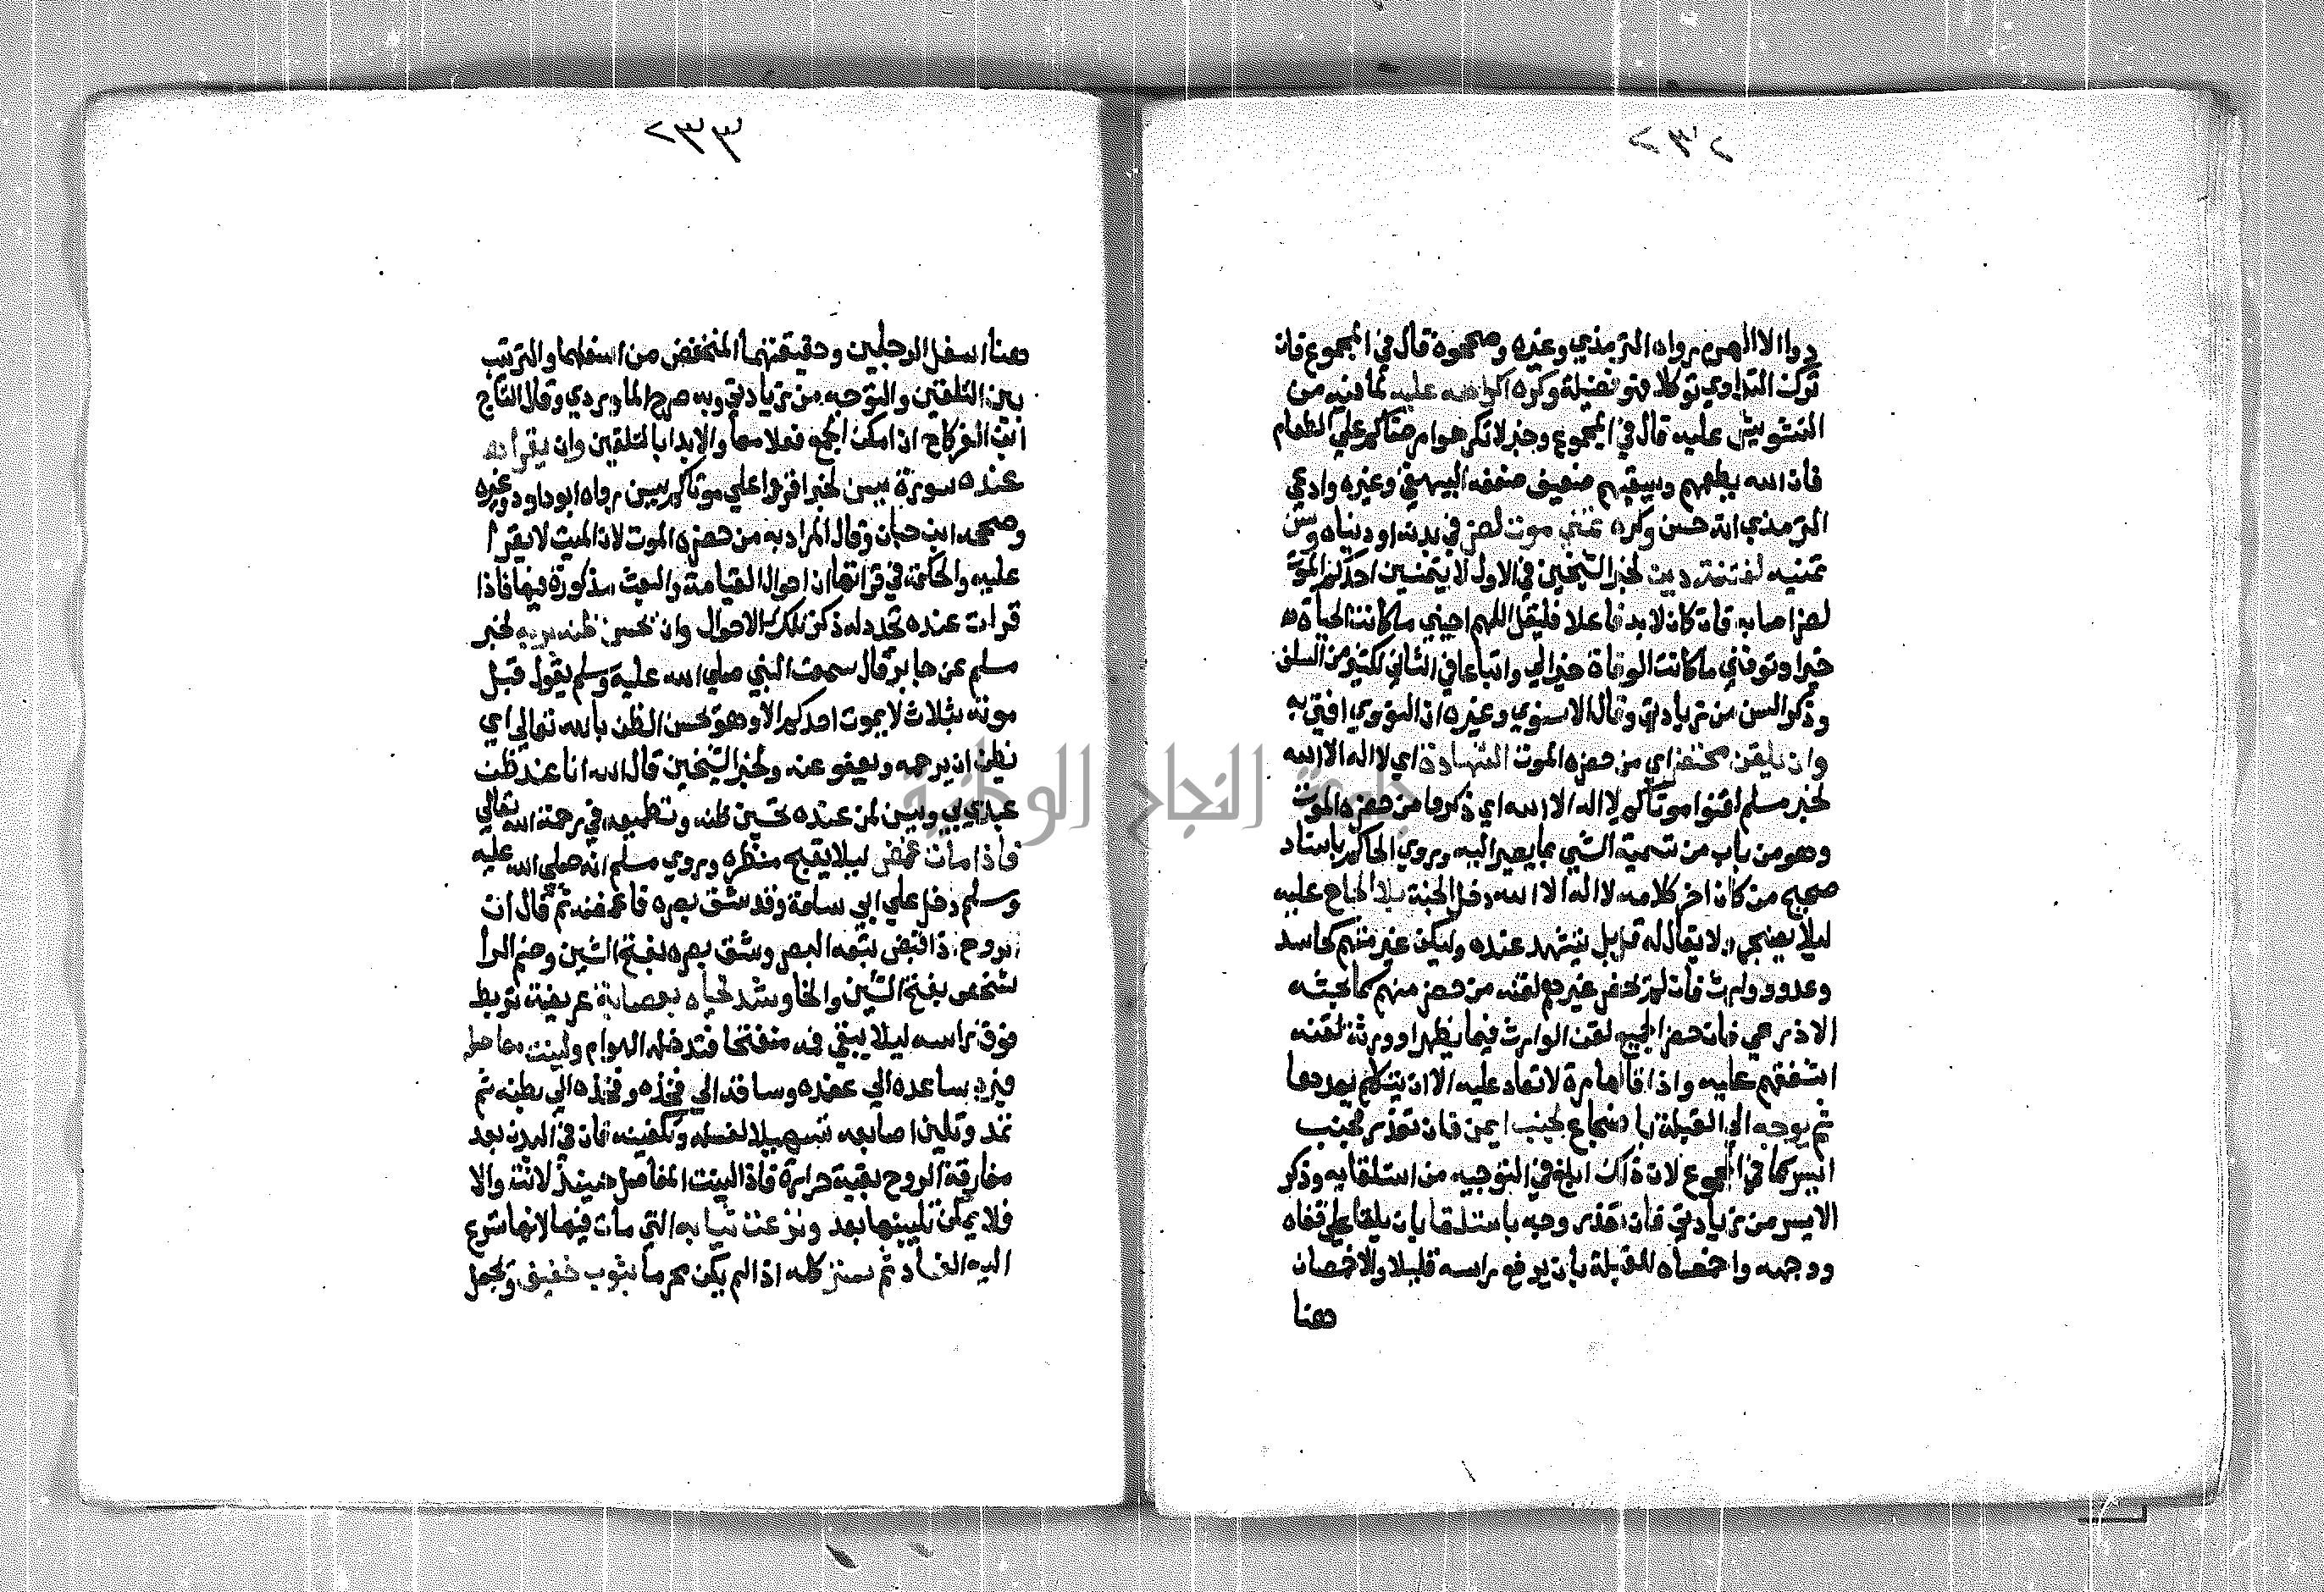 ٢٣٢
دواا لا الهرم رواه الترمذي وغيره وصححوه قال في المجموع فان
ترك التداوي توكلا فهو فضيلة وكره اكراهه عليه لما فيه من
التشويش عليه قال في المجموع وخبر لا تكرهوا مرضاكم علي الطعام
فان الله يطعمهم ويسقيهم ضعيف ضعفه البيهقي وغيره وادعي
الترمذي انه حسن وكره تمني موت لضر في بدنه او دنياه وسن
تمنيه لفتنة دين لخبر الشيخين في الاول لا يتمنين احدكم الموت
لضر اصابه فان كان لا بد فاعلا فليقل اللهم احيني ما كانت الحياة
خيرا وتوفني ما كانت الوفاة خيرا لي واتباعا في الثاني لكثير من السلف
وذكر السن من زيادتي وقال الاسنوي وغيره ان النووي افتي به
وان يلقن محتضر اي من حضره الموت الشهادة اي لا اله الا الله
لخبر مسلم لقنوا موتاكم لا اله الا الله اي ذكروا من حضره الموت
وهو من باب من تسمية الشي بما يصير اليه وروي الحاكم باسناد
صحيح من كان اخر كلامه لا اله الا الله دخل الجنة بلا الحاح عليه
ليلا يضجر ولا يقال له قل بل يتشهد عنده وليكن غير متهم كحاسد
وعدو ووارث فان لم يحضر غيرهم لقنه من حضر منهم كما بحثه
الاذرعي فان حضر الجميع لقن الوارث فيما يظهر او ورثة لقنه
اشفقهم عليه واذا قالها مرة لا تعاد عليه الا ان يتكلم بعدها
ثم يوجه الي القبلة باضجاع لجنب ايمن فان تعذر لجنب
ايسر كما في المجموع لان ذلك ابلغ في التوجيه من استلقايه وذكر
الايسر من زيادتي فان تعذر وجه باستلقا بان يلقا علي قفاه
ووجهه واخمصاه للقبلة بان يرفع راسه قليلا والاخمصان
هنا
٢٣٣
هنا اسفل الرجلين وحقيقتهما المنخفض من اسفلهما والترتيب
بين التلقين والتوجه من زيادتي وبه صرح الماوردي وقال التاج
ابن الفركاح ان امكن الجمع فعلا معا والا بدا بالتلقين وان يقرا
عنده سورة يس لخبر اقروا علي موتاكم يس رواه ابو داود وغيره
وصححه ابن حبان وقال المراد به من حضره الموت لان الميت لا يقرا
عليه والحكمة في قراتها ان احوال القيامة والبعث مذكورة فيها فاذا
قرات عنده تجدد له ذكر تلك الاحوال وان يحسن ظنه بربه لخبر
مسلم عن جابر قال سمعت النبي صلي الله عليه وسلم يقول قبل
موته بثلاث لا يموت احدكم الا وهو يحسن الظن بالله تعالي اي
يظن ان يرحمه ويعفو عنه ولخبر الشيخين قال الله انا عند ظن
عبدي بي ويسن لمن عنده تحسين ظنه وتطميعه في رحمة الله تعالي
فاذا مات غمض ليلا يقبح منظره وروي مسلم انه صلي الله عليه
وسلم دخل علي ابي سلمة وقد شق بصره فاغمضه ثم قال ان
الروح اذا قبض تبعه البصر وشق بصره بفتح الشين وضم الرا
شخص بفتح الشين والخا وشد لحياه بعصابة عريضة تربط
فوق راسه ليلا يبقي فمه منفتحا فتدخله الهوام ولينت مفاصل
فيرد ساعده الي عضده وساقه الي فخذه وفخذه الي بطنه ثم
تمد وتلين اصابعه تسهيلا لغسله وتكفينه فان في البدن بعد
مفارقة الروح بقية حرارة فاذا لينت المفاصل حينيذ لانت والا
فلا يمكن تليينها بعد ونزعت ثيابه التي مات فيها لانها تسرع
اليه الفساد ثم ستر كله اذا لم يكن محرما بثوب خفيف وتجعل
جامعة النجاح الوطنية